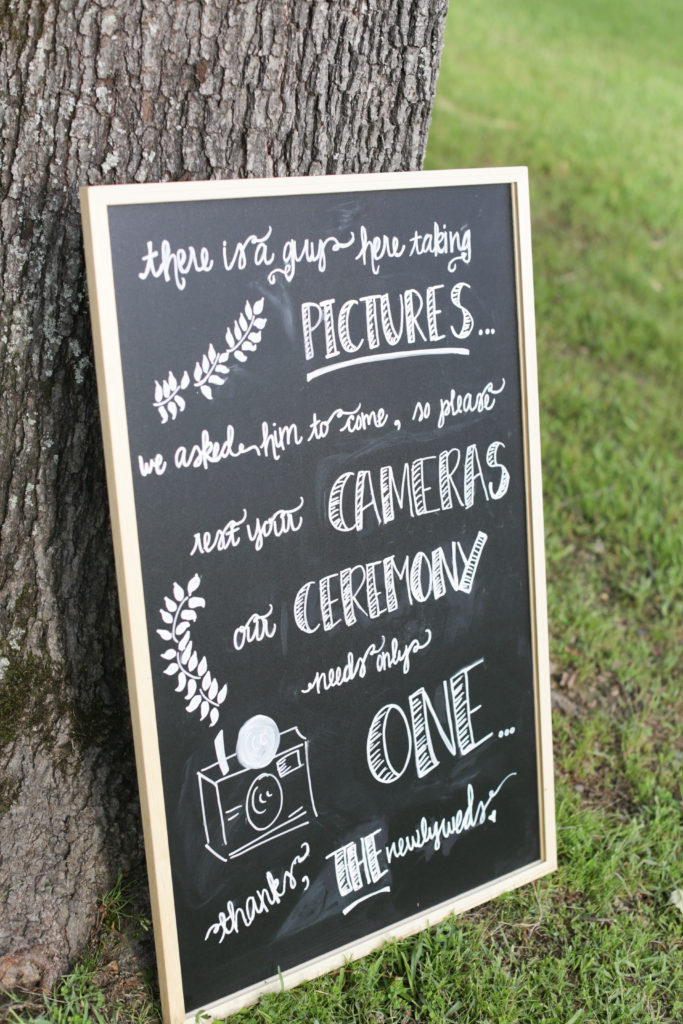 there is a guy here taking
PICTURES...
we asked him to come, so please
rest your CAMERAS
our CEREMONY
needs only
ONE...
thanks, THE newlyweds